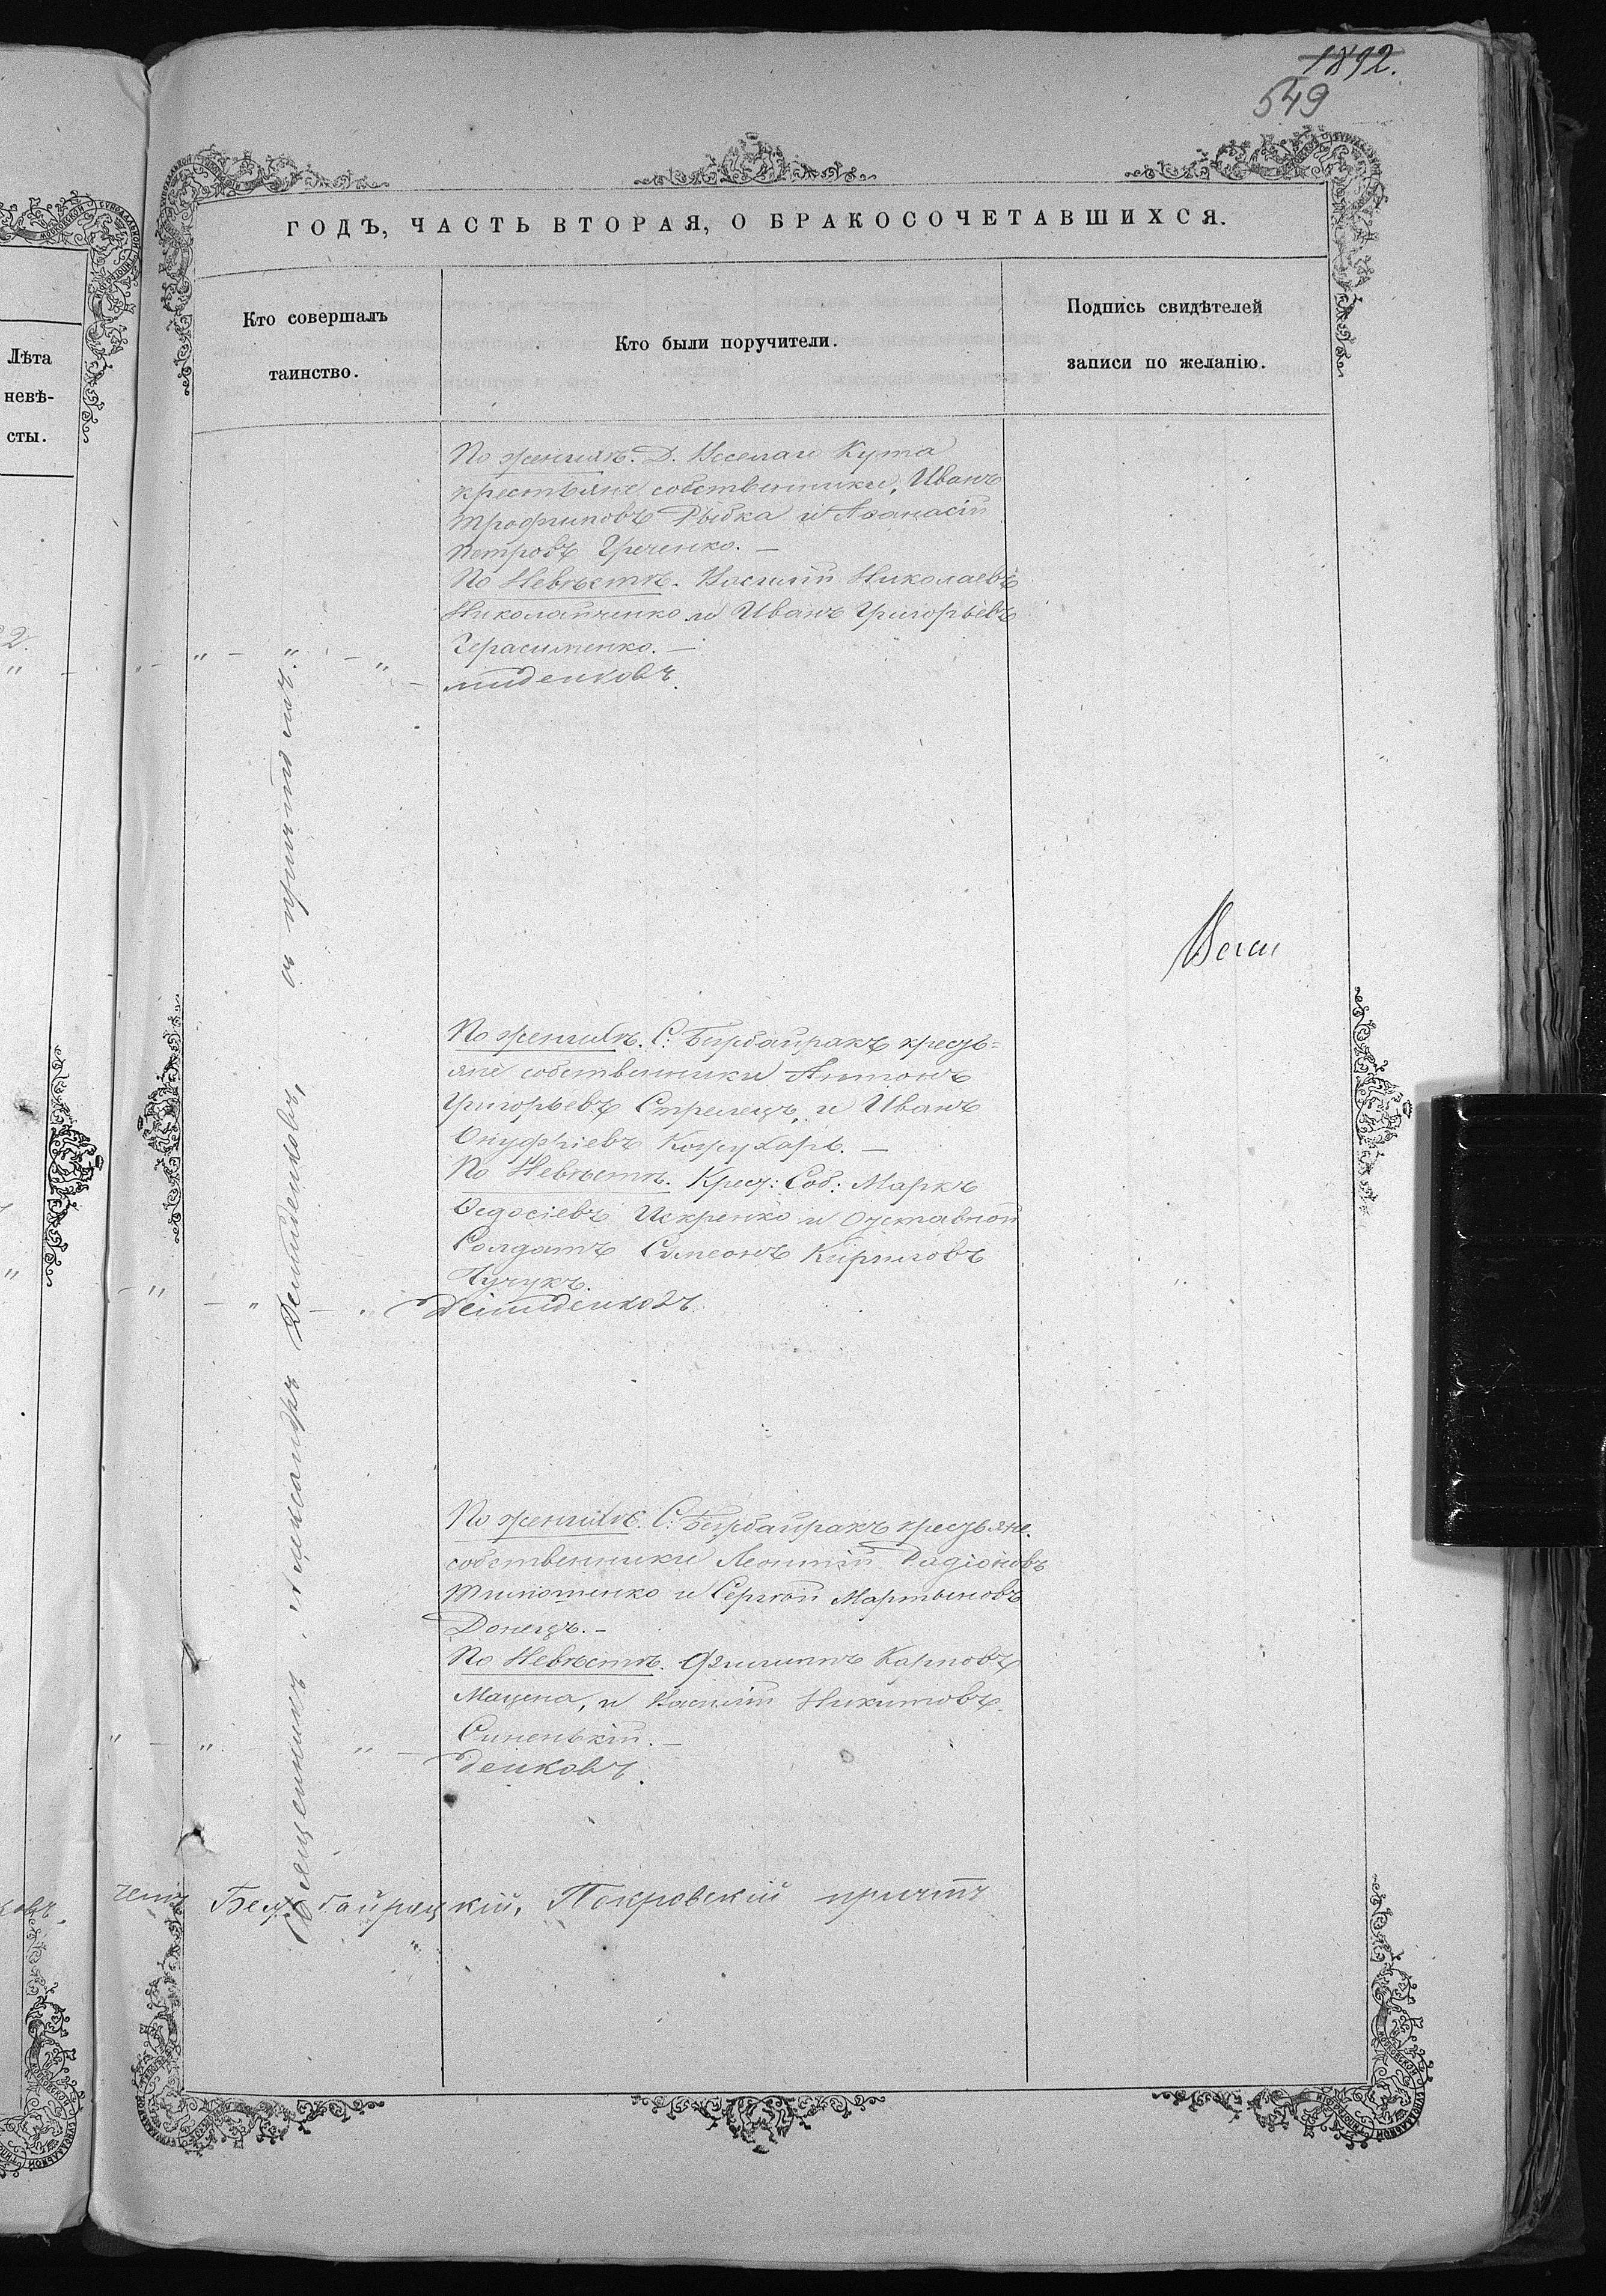 1892.
549
ГОДЪ, ЧАСТЬ ВТОРАЯ, О БРАКОСОЧЕТАВШИХСЯ.
Лѣта
невѣ-
сты.
Кто совершалъ
таинство.
Кто были поручители.
Подпись свидѣтелей
записи по желанію.
По женихѣ. Д. Веселаго Кута
крестьяне собственники, Иванъ
Трофимовъ Рыбка и Аѳанасій
Петровъ Гриченко. —
По Невѣстѣ. Василій Николаевъ
Николайченко и Иванъ Григорьевъ
Герасименко. —
миденковъ.
Священникъ Александръ Демиденковъ, съ причтомъ.
По женихѣ. С. Бузбайракъ кресть=
яне собственники Антонъ
Григорьевъ Стрелецъ, и Иванъ
Онуфріевъ Кожухарь. —
По Невѣстѣ. Крес: Соб: Маркъ
Ѳедосіевъ Искренко и Отставной
Солдатъ Симеонъ Кириловъ
Демиденковъ
По женихѣ. С. Бузбайракъ крестьяне
собственники Леонтій Радіоновъ
Тимошенко и Сергѣй Мартыновъ
Донецъ. —
По Невѣстѣ. Филиппъ Карповъ
Мацена, и Василій Никитовъ
Синенькій. —
денковъ.
Покровскій причтъ